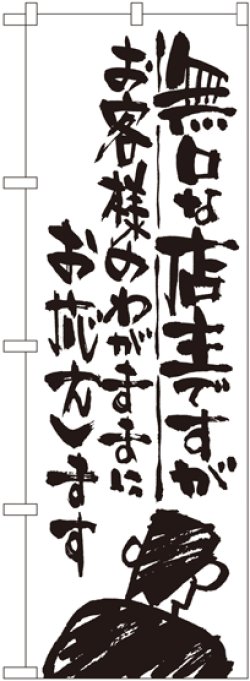 無口な店主ですが
お客様のわがままに
お応えします